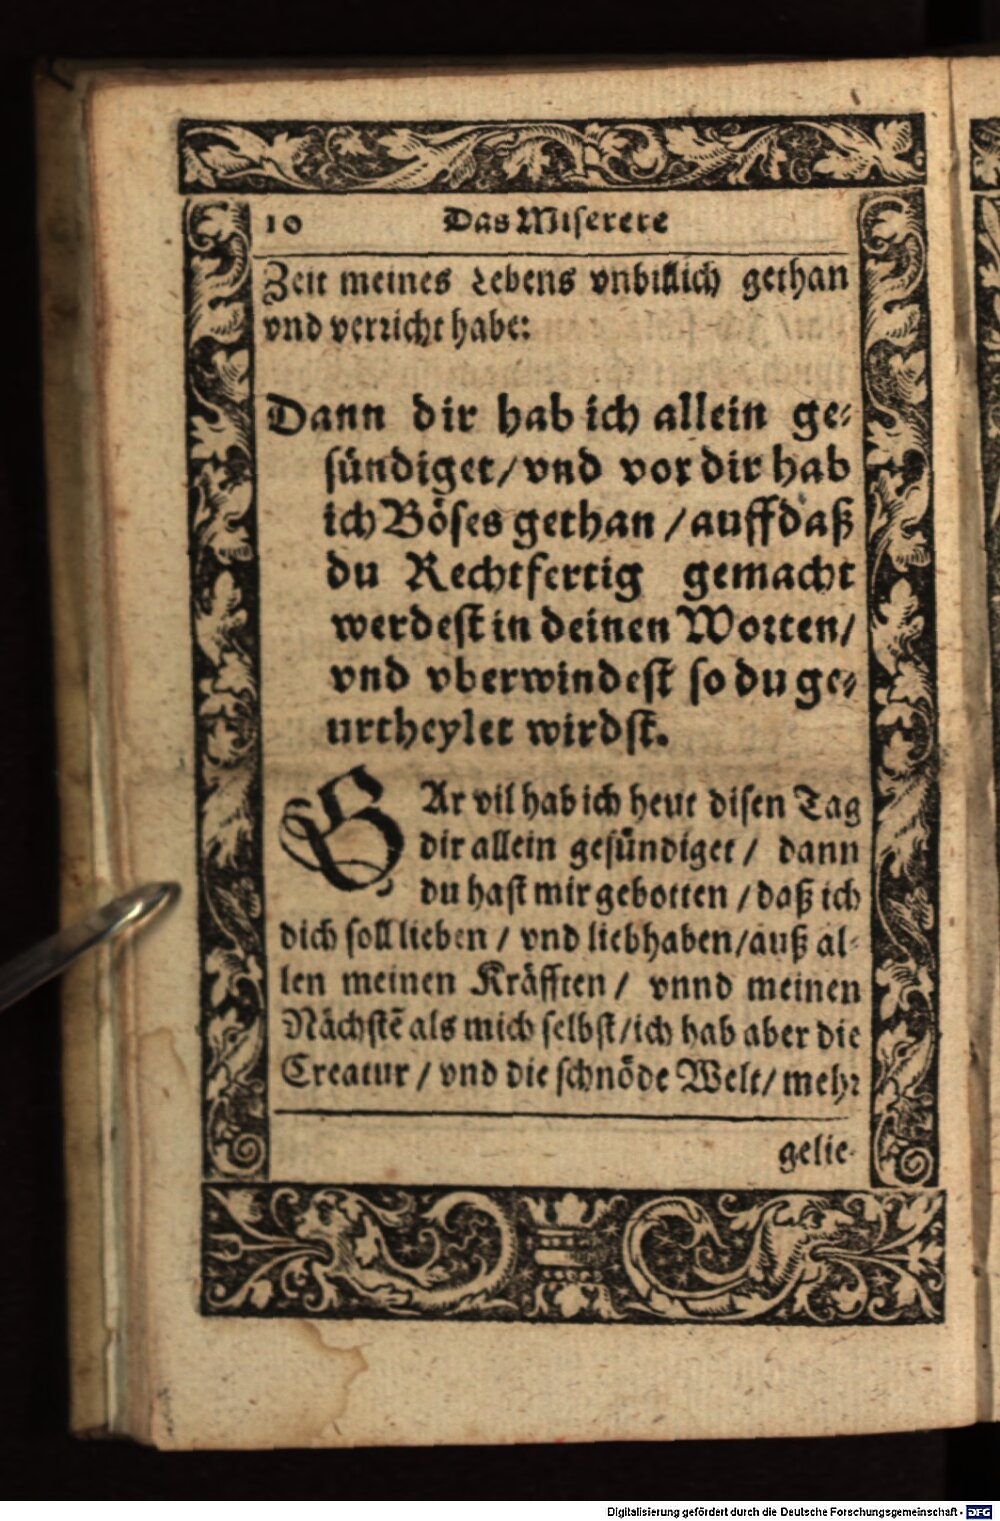 10 Das Miserere
Zeit meines Lebens vnbillich gethan
vnd verricht habe:
Dann dir hab ich allein ge-
sündiget/ vnd vor dir hab
ich Böses gethan / auff daß
du Rechtfertig gemacht
werdest in deinen Worten/
vnd vberwindest so du ge-
urtheylet wirdst.
GAr vil hab ich heut disen Tag
dir allein gesündiget / dann
du hast mir gebotten / daß ich
dich soll lieben / vnd liebhaben/ auß al-
len meinen Kräfften / vnnd meinen
Nächstē als mich selbst/ ich hab aber die
Creatur / vnd die schnöde Welt/ mehr
gelie-
Digitalisierung gefördert durch die Deutsche Forschungsgemeinschaft - DFG